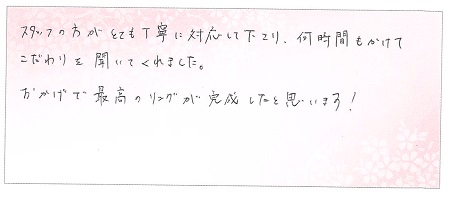 スタッフの方がとても丁寧に対応して下さり、何時間もかけて
こだわりを聞いてくれました。
おかげで最高のリングが完成したと思います!